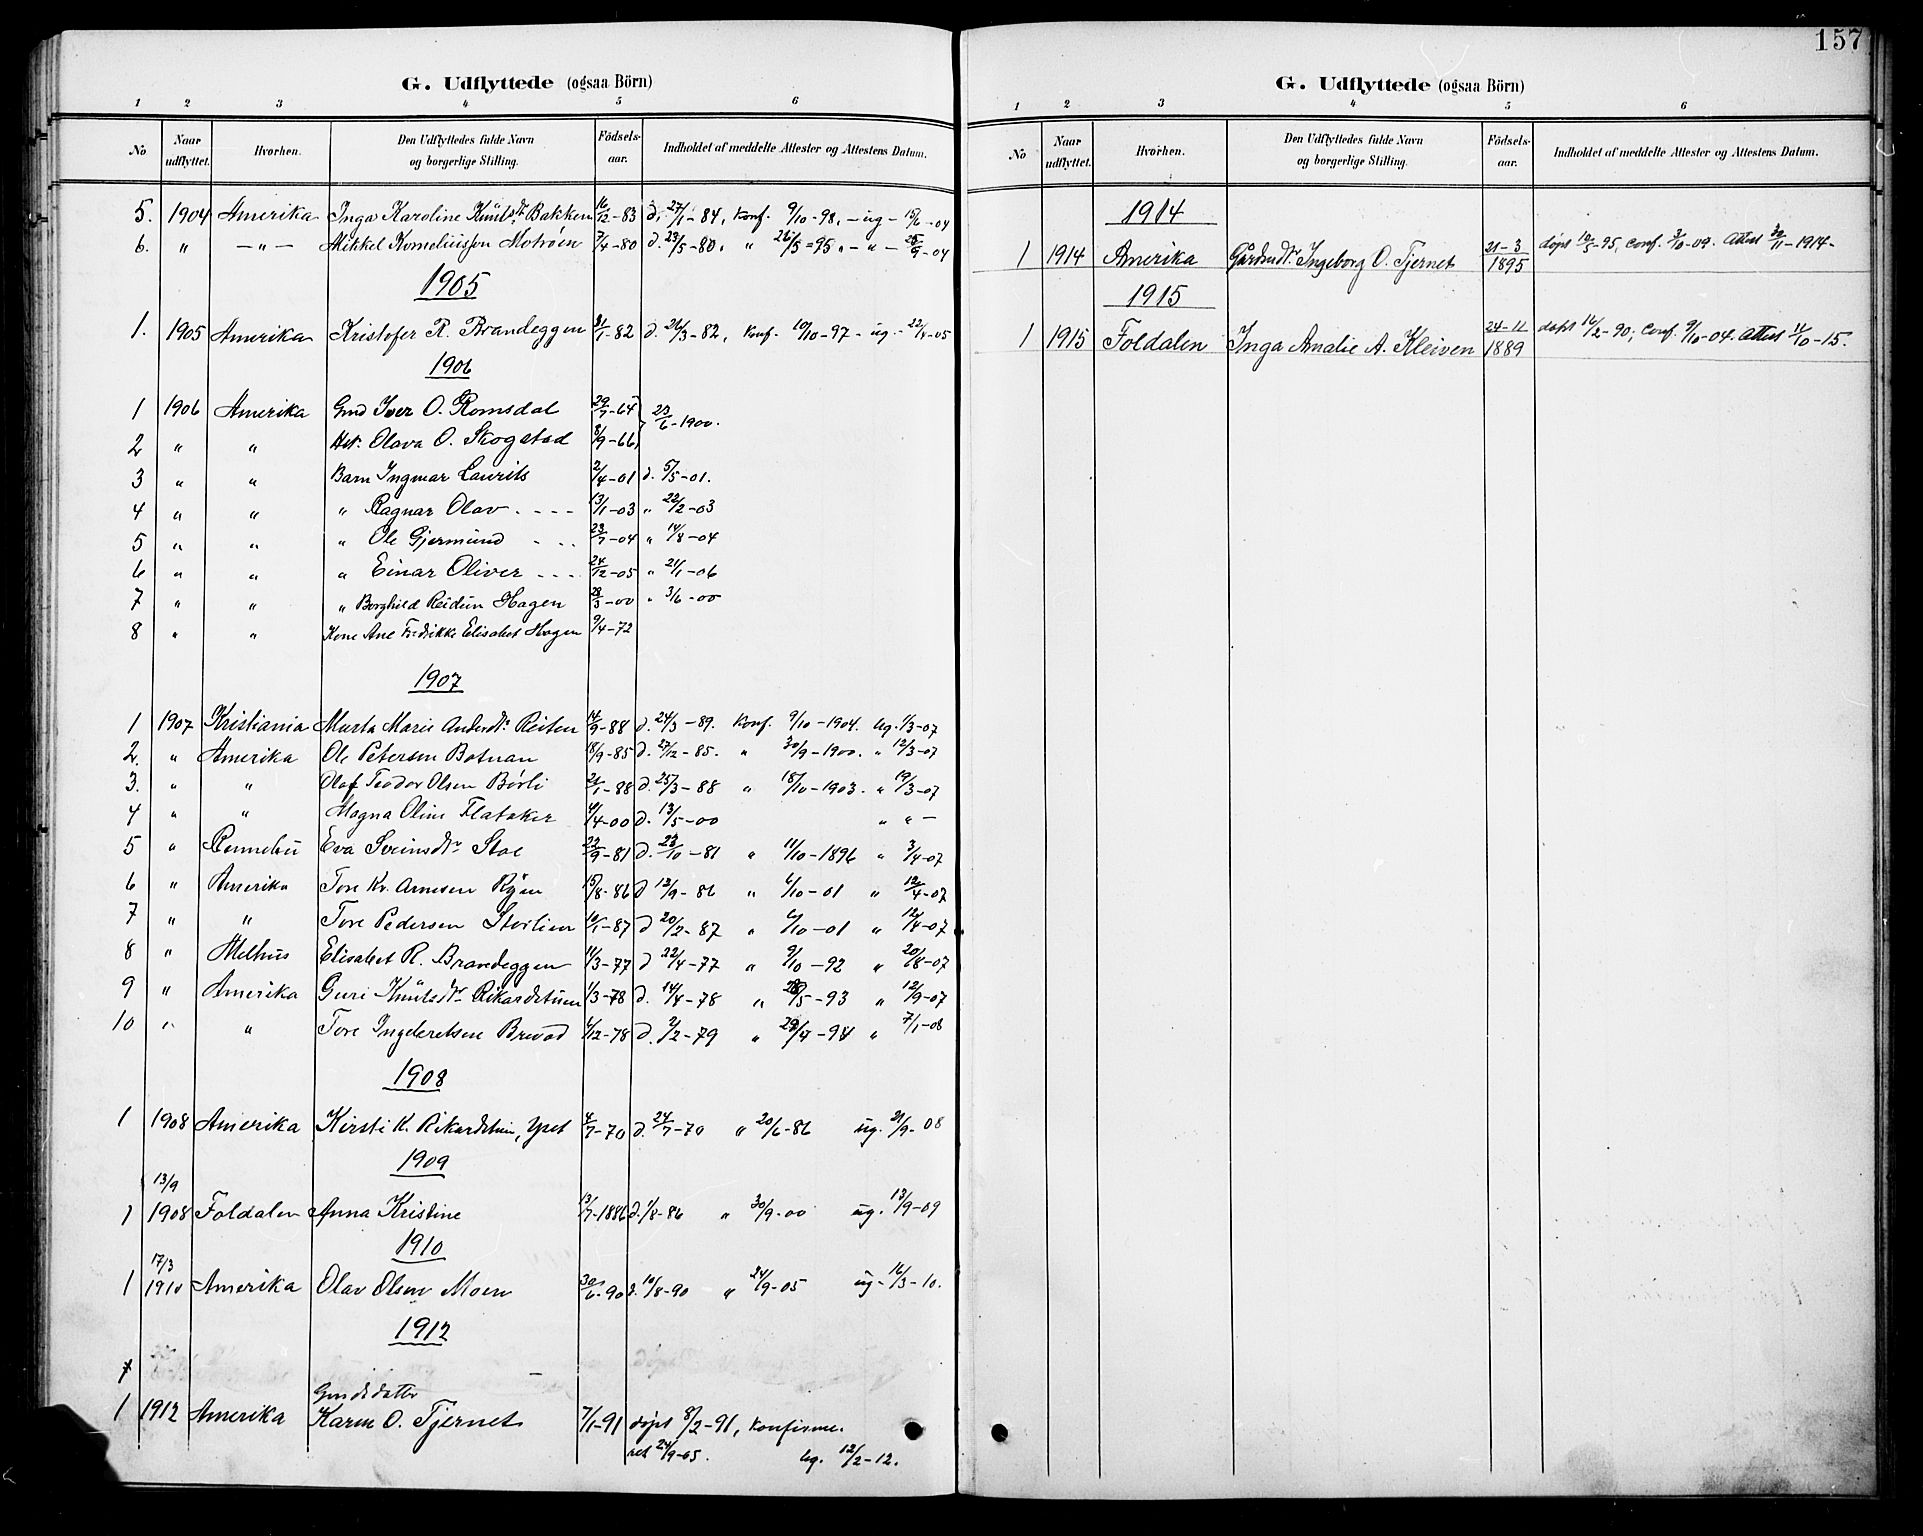 157
G. Udflyttede (ogsaa Börn)
1 2 3 4 5 6
No Naar udflyttet. Hvorhen. Den Udflyttedes fulde Navn og borgerlige Stilling. Födsels-aar. Indholdet af meddelte Attester og Attestens Datum.
5. 1904 Amerika Inga Karoline Knutsdtr Bakken 16/12-83 d. 27/1-84, konf. 9/10-98, - ug - 15/6-04
6. " - " - Mikkel Korneliussen Motröen 7/4-80 d. 23/5-80, " 26/5=95 " - " - 25/9-04
1905
1. 1905 Amerika Kristofer R. Brandeggen 31/1-82 d. 26/3-82, konf. 10/10-97 - ug - 22/4-05
1906
1 1906 Amerika Gmd Iver O. Romsdal 29/7-65 } 23/6-1900.
2 " " Hst. Olava O. Skogstad 8/9-66
3 " " Barn Ingmar Laurits 2/4-01 d. 5/5-01.
4 " " " Ragnar Olav . - - - 13/1-03 " 22/2-03
5 " " " Ole Gjermund - - - 23/7-04 " 14/8-04
6 " " " Einar Oliver - - - 24/12-05 " 21/1-06
7 " " " Borghild Reidun Hagen 28/3-00 " 3/6-00
8 " " Kone Ane Fredrikke Elisabet Hagen 9/4-72
1907
1 1907 Kristiania Marta Marie Andersdtr Reiten 14/9-88 d. 24/3-89. Konf. 9/10-1904. Ug. 1/3-07
2. " Amerika Ole Petersen Botnan 18/9-85 d. 27/12-85. " 30/9-1900. " 12/3-07
3. " " Olaf Teodor Olsen Børli 21/1-88 d. 25/3-88 " 18/10-1903. " 19/3-07
4 " " Magna Oline Flataker 4/4-00 d. 13/5-00 " " -
5 " Rennebu Eva Sveinsdtr Stoe 23/9-81 d. 23/10-81 " 11/10-1896 " 3/4-07
6 " Amerika Tore Kr. Arnesen Ryen 15/8-86 d 12/9-86 " 6/10-01 " 12/4-07
7 " " Tore Pedersen Storlien 10/1-87 d 20/2-87 " 6/10-01 " 12/4-07
8 " Melhus Elisabet R. Brandeggen 11/3-77 d 22/4-77 " 9/10-92 " 20/8-07
9 " Amerika Guri Knutsdtr Rikardstuen 1/3-78 d. 14/4-78 " 28/5-93 " 12/9-07
10 " " Tore Ingebretsen Brevad 4/12-78 d. 2/2-79 " 29/4-94 " 7/1-08
1908
1 1908 Amerika Kirsti K. Rikardstuen, Yset 4/7-70 d. 24/7-70 " 20/6-86 ug. 21/9-08
1909
13/9
1 1908 Foldalen Anna Kristine 13/7-1886 d. 1/8-86 " 30/9-00 ug. 13/9-09
1910
17/3
1 1910 Amerika Olav Olsen Moen 30/6-90 d. 10/8-90 " 24/9-05 ug - 16/3-10.
1912
Gmdsdatter
1 1912 Amerika Karen O. Tjernet 7/1-91 døpt 8/2-91, konfirme-
ret 24/9-05. Ug. 12/2-12.
G. Udflyttede (ogsaa Börn)
1 2 3 4 5 6
No Naar udflyttet. Hvorhen. Den Udflyttedes fulde Navn og borgerlige Stilling. Födsels-aar. Indholdet af meddelte Attester og Attestens Datum.
1914
1 1914 Amerika Gårdmdtr. Ingeborg O. Tjernet 21-3 1895 døpt 12/5-95, conf. 3/10-09. Attest 30/11-1914-
1915
1 1915 Foldalen Inga Amalie A. Kleiven 24-11 1889 døpt 16/2-90; conf. 9/10-04. Attest 11/10-15.